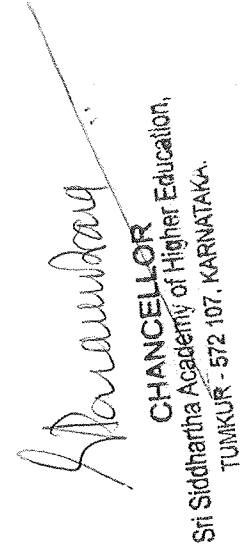 CHANCELLOR
Sri Siddhartha Academy of Higher Education,
TUMKUR - 572 107, KARNATAKA.